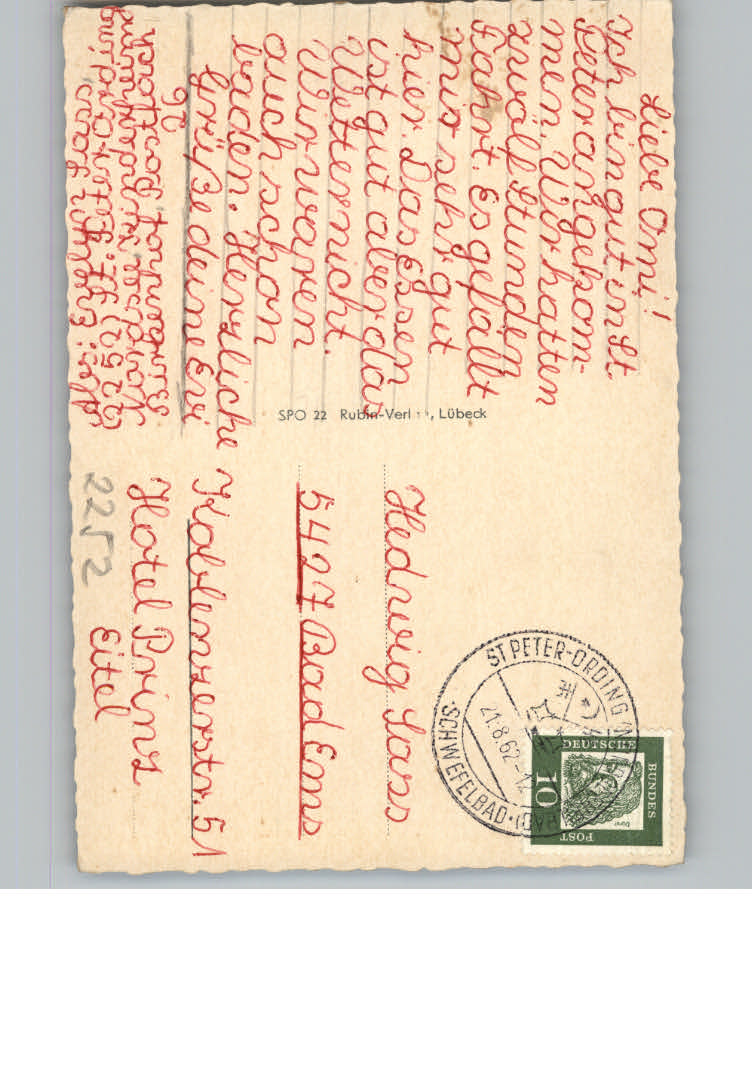 Liebe Omi!
Ich bin gut in St.
Peter angekom-
men. Wir hatten
zwölf Stunden
Fahrt. Es gefällt
mir sehr gut
hier. Das Essen
ist gut aber das
Wetter nicht.
Wir waren
auch schon
baden. Herzliche
Grüße deine Evi
Sass
2252 St. Peter Ording
SPO 22 Rubin-Verl , Lübeck
Hedwig Sass
5427 Bad Ems
Koblenzerstr. 51
Hotel Prinz
Eitel
2252
ST PETER-ORDING
21.8.62-12
SCHWEFELBAD
DEUTSCHE
BUNDES
POST
10